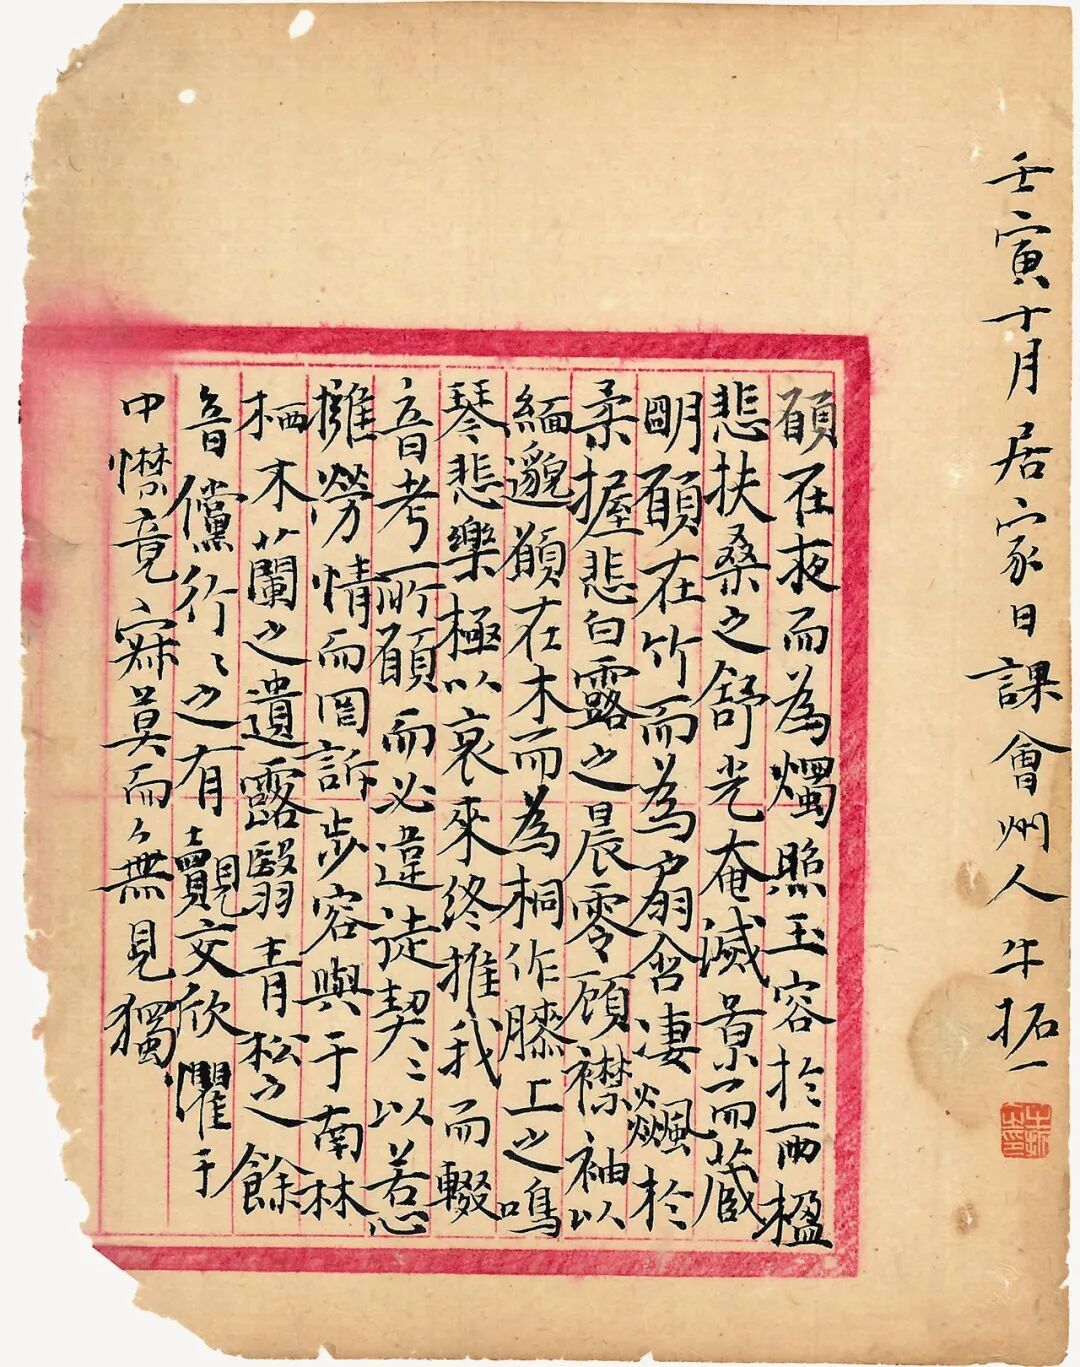 壬寅十月居家日課會州人牛拓一
願在夜而為燭照玉容於兩楹
悲扶桑之舒光奄滅景而藏
明願在竹而為扇含凄飈於
柔握悲白露之晨零顧襟袖以
緬邈願在木而為桐作膝上之鳴
琴悲樂極以哀來終推我而輟
音考所願而必違徒契〻以苦心
擁勞情而罔訴步容與于南林
栖木蘭之遺露翳青松之餘
音儻行〻之有覿交欣懼于
中襟竟寂莫而無見獨